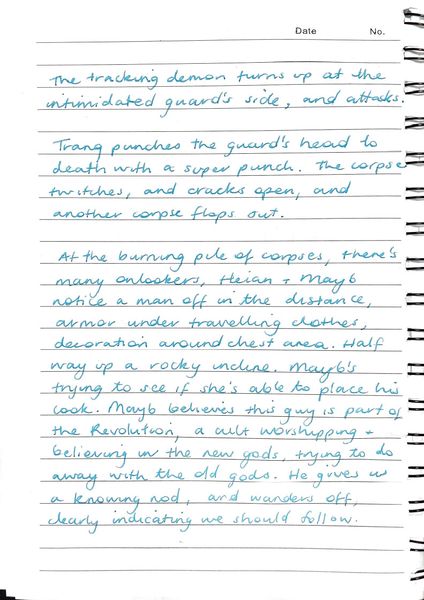 Date No.
The tracking demon turns up at the
intimidated guard's side, and attacks.
Trang punches the guard's head to
death with a super punch. The corpse
twitches, and cracks open, and
another corpse flops out.
At the burning pile of corpses, there's
many onlookers, Heian + Mayb
notice a man off in the distance,
armor under travelling clothes,
decoration around chest area. Half
way up a rocky incline. Mayb's
trying to see if she's able to place his
look. Mayb believes this guy is part of
the Revolution, a cult worshipping +
believing in the new gods, trying to do
away with the old gods. He gives us
a knowing nod, and wanders off,
clearly indicating we should follow.